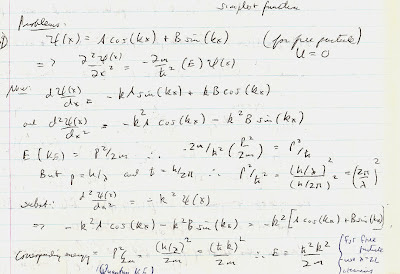 simplest function
Problems:
ψ(x) = A cos(kx) + B sin(kx) (for free particle)
=> ∂²ψ(x)/∂x² = -2m/ħ² (E) ψ(x) U = 0
Now: dψ(x)/dx = -kA sin(kx) + kB cos(kx)
and d²ψ(x)/dx² = -k²A cos(kx) - k²B sin(kx)
E (KE) = P²/2m ∴ -2m/ħ² (P²/2m) = P²/ħ
But p = h/λ and ħ = h/2π ∴ P²/ħ² = (h/λ)²/(h/2π)² = (2π/λ)²
subst: d²ψ(x)/dx² = -k² ψ(x)
=> -k²A cos(kx) - k²B sin(kx) = -k² [A cos(kx) + B sin(kx)]
Corresponding energy: P²/2m = (h/λ)²/2m = (ħk)²/2m ∴ E = ħ²k²/2m (For free particle
(Quantum KE)